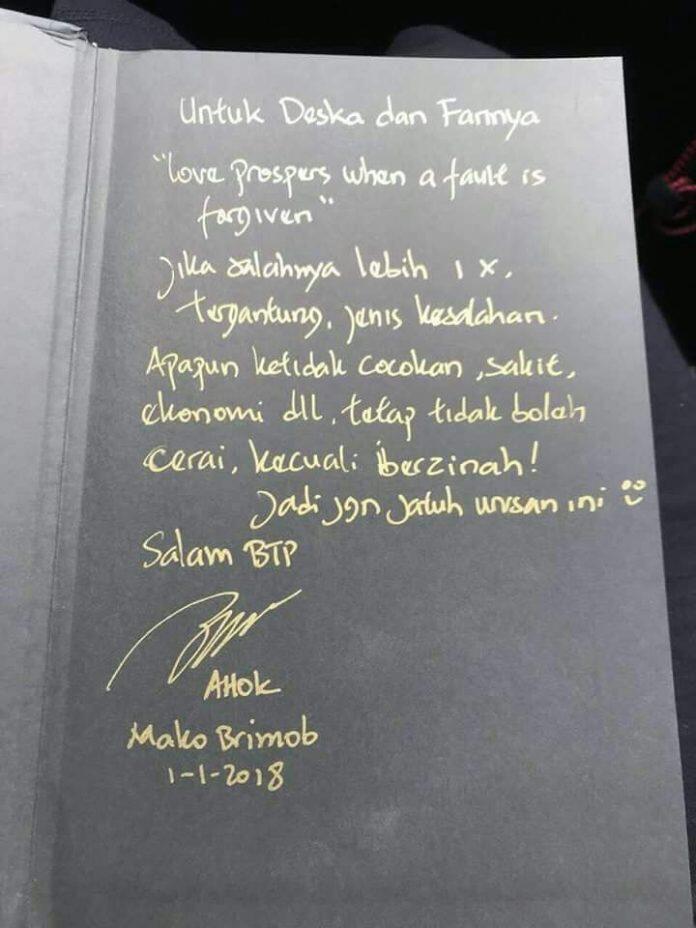 Untuk Deska dan Farnya
"love prospers when a fault is
forgiven"
Jika salahnya lebih 1 x,
tergantung, jenis kesalahan.
Apapun ketidak cocokan, sakit,
ekonomi dll, tetap tidak boleh
cerai, kecuali berzinah!
Jadi jgn jatuh urusan ini
Salam BTP
AHOK
Mako Brimob
1-1-2018